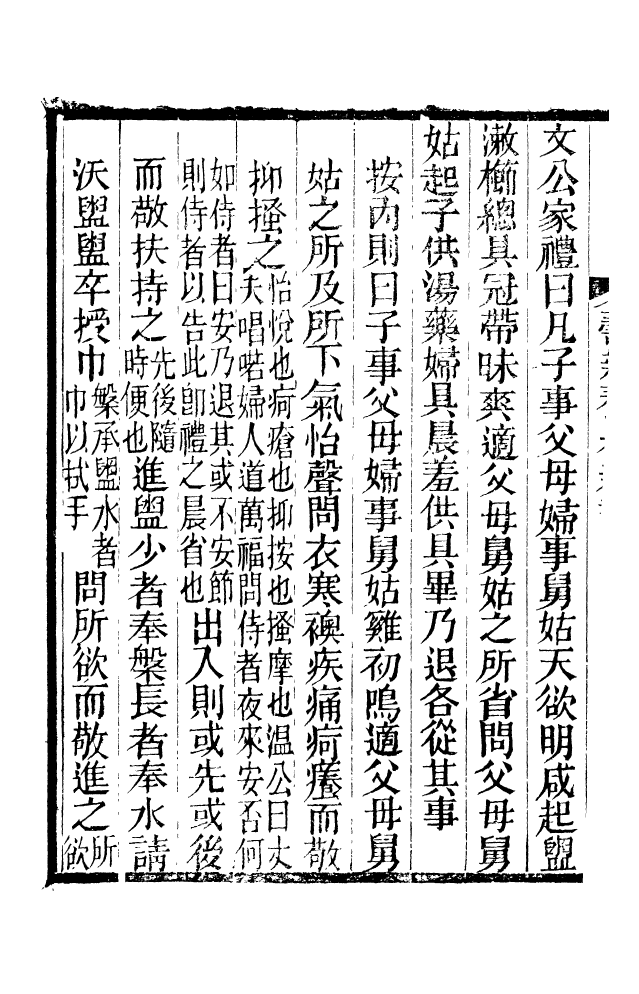 文公家禮曰凡子事父母婦事舅姑天欲明咸起盥
漱櫛總具冠帶昧爽適父母舅姑之所省問父母舅
姑起子供湯藥婦具晨羞供具畢乃退各從其事
按內則曰子事父母婦事舅姑雞初鳴適父母舅
姑之所及所下氣怡聲問衣寒襖疾痛疴癢而敬
抑搔之怡悅也疴瘡也抑按也搔摩也温公曰丈
夫唱喏婦人道萬福問侍者夜來安否何
如侍者曰安乃退其或不安節
則侍者以告此卽禮之晨省也出入則或先或後
而敬扶持之先後隨
時便也進盥少者奉槃長者奉水請
沃盥盥卒授巾槃承盥水者
巾以拭手問所欲而敬進之所
欲